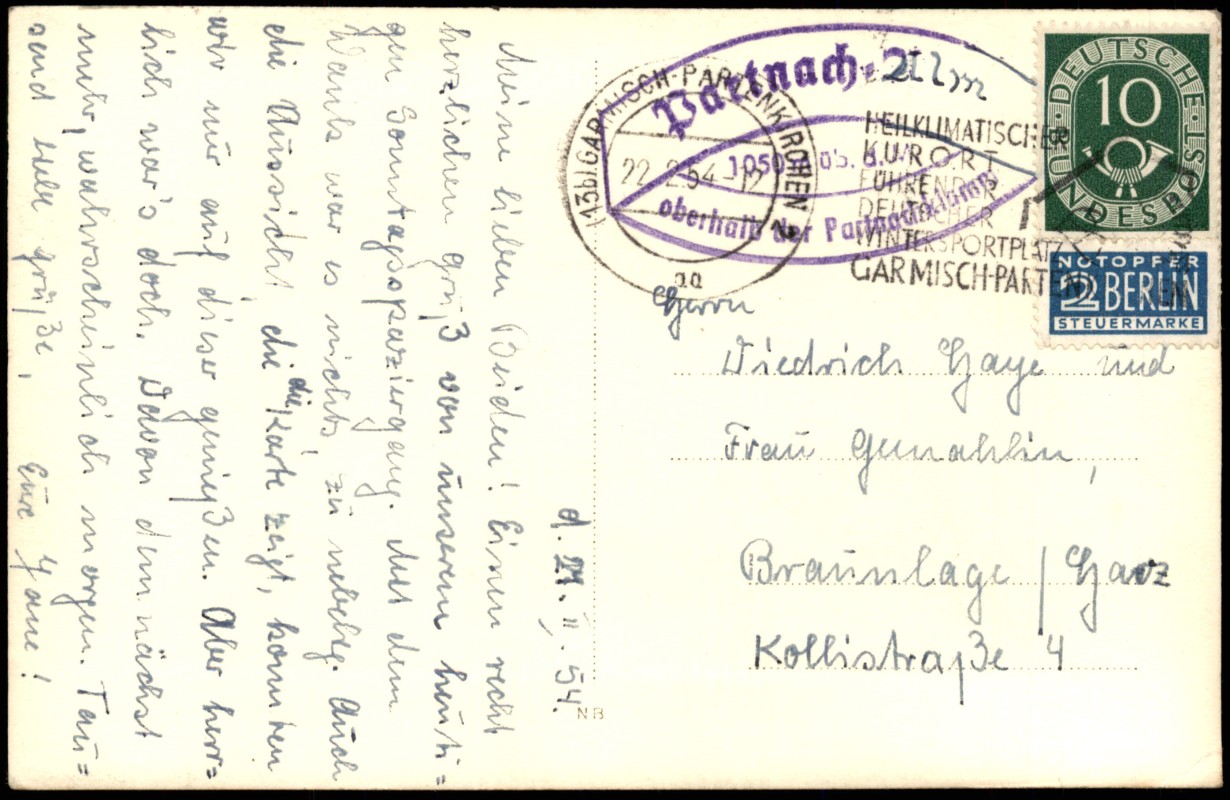 d. 21. II. 54.
Meine lieben Beiden! Einen recht
herzlichen Gruß von unserem heuti=
gen Sonntagsspaziergang. Mit dem
Wank war es nichts, zu neblig. Auch
die Aussicht, die die Karte zeigt, konnten
wir nur auf dieser genießen. Aber herr=
lich war's doch. Davon demnächst
mehr, wahrscheinlich morgen. Tau=
send liebe Grüße, Eure
Partnach-Alm
1050
oberhalb der Partnachklamm
(13b) GARMISCH-PARTENKIRCHEN 2
22.2.54-12
aa
HEILKLIMATISCHER
KURORT
FÜHRENDER
DEUTSCHER
WINTERSPORTPLATZ
GARMISCH-PARTENKIRCHEN
DEUTSCHE BUNDESPOST
10
NOTOPFER
2 BERLIN
STEUERMARKE
Herrn
Diedrich Haye und
Frau Gemahlin,
Braunlage / Harz
Kollistraße 4
NB